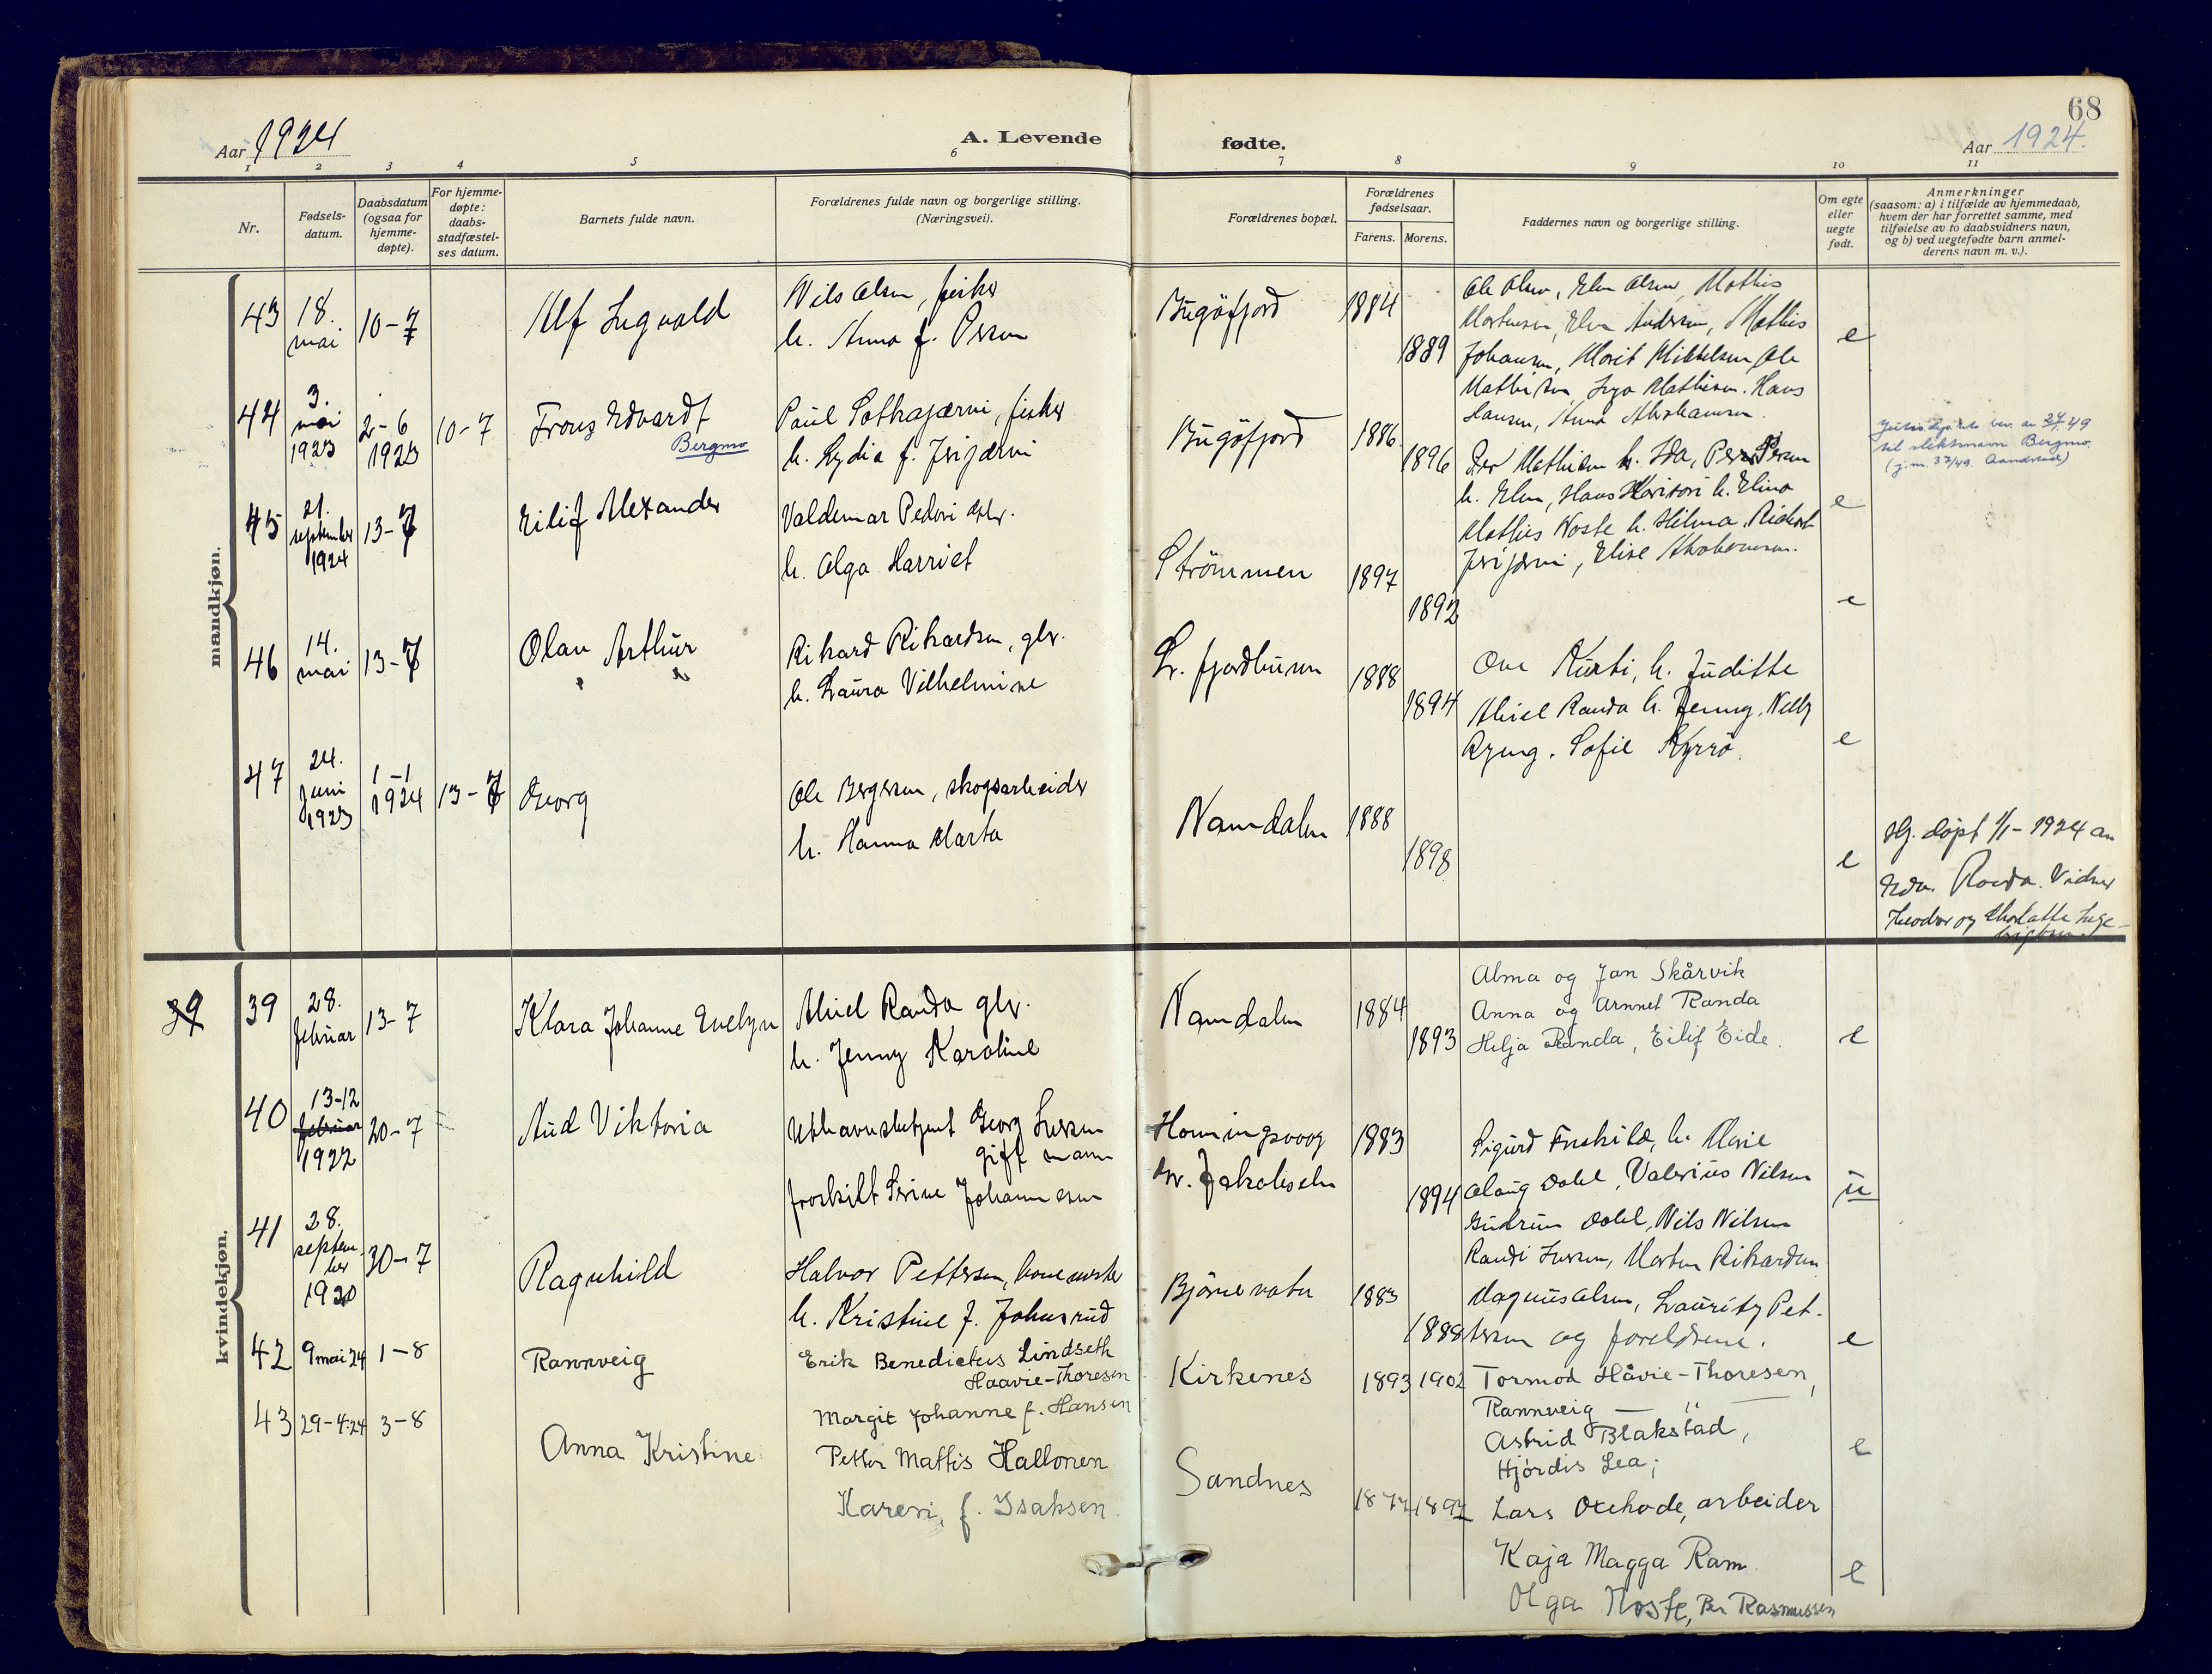 68
Aar 1924
A. Levende
fødte.
Aar 1924.
1 2 3 4 5 6 7 8 9 10 11
Nr.
Fødsels-
datum.
Daabsdatum
(ogsaa for
hjemme-
døpte).
For hjemme-
døpte:
daabs-
stadfæstel-
ses datum.
Barnets fulde navn.
Forældrenes fulde navn og borgerlige stilling.
(Næringsvei).
Forældrenes bopæl.
Forældrenes
fødselsaar.
Farens. Morens.
Faddernes navn og borgerlige stilling.
Om egte
eller
uegte
født.
Anmerkninger
(saasom: a) i tilfælde av hjemmedaab,
hvem der har forrettet samme, med
tilføielse av to daabsvidners navn,
og b) ved uegtefødte barn anmel-
derens navn m. v.).
mandkjøn.
43
18.
mai
10-7
Alf Ingvald
Nils Olsen, fisker
h. Anna f. Persen
Bugöfjord
1884
1889
Ole Olsen, Elen Olsen, Mathis
Mortensen, Elen Andersen, Mathis
Johansen, Marit Mikkelsen, Ole
Mathisen, Inga Mathisen. Hans
Hansen, Anna Abrahamsen.
e
44
3.
mai
1923
2-6
1923
10-7
Frans Edvardt
Bergmo
Paul
fisker
h. Lydia f.
Bugöfjord
1886
1896
Per Mathisen h. Ida, Per Persen
h. Elen, Hans h. Elina
Mathis Noste h. Hilma, Rickart
Elise Abrahamsen.
e
til slektsnavn Bergmo
45
21.
september
1924
13-7
Eilif Alexander
Valdemar Pedori
h. Olga Harriet
Strömmen
1897
1892
e
46
14.
mai
13-7
Olav Arthur
Rikard Rikardsen, glr.
h. Laura Vilhelmine
fjordbunn
1888
1894
Ove Kurti, h. Juditte
Abiel Randa h. Jenny, Nelly
Ryeng. Sofie Kyrrö.
e
47
24.
juni
1923
1-1
1924
13-7
Georg
Ole Bergersen, skogsarbeider
h. Hanna Marta
Namdalen
1888
1898
e
Hj. døpt 1/1-1924 av
Randa. Vidner
Theodor og Charlotte Inge-
brigtsen.
kvindekjøn.
39
39
28.
februar
13-7
Klara Johanne Evelyn
Abiel Randa glr.
h. Jenny Karoline
Namdalen
1884
1893
Alma og Jan Skårvik
Anna og Arnnet Randa
Helja Randa, Eilif Eide.
e
40
13-12
februar
1922
20-7
Aud Viktoria
Georg Iversen
gift mann
fraskilt Serine Johannesen
Honningsvaag
Jakobselv
1883
1894
Sigurd h. Marie
Olaug Dahl, Valerius Nilsen
Gudrun Dahl, Nils Nilsen
Randi Iversen, Morten Rikardsen
u
41
28.
septem
ber
1920
30-7
Ragnhild
Halvor Pettersen,
h. Kristine f. Johnsrud
Björnevatn
1883
1888
Magnus Olsen, Lauritz Pet-
tersen og foreldrene.
e
42
9 mai 24
1-8
Rannveig
Erik Benedictus Lindseth
Haavie-Thoresen
Margit Johanne f. Hansen
Kirkenes
1893
1902
Tormod Håvie-Thoresen,
Rannveig — " —
Astrid Blakstad,
Hjördis Lea;
e
43
29-4-24
3-8
Anna Kristine
Petter Mattis Hallonen
Karen, f. Isaksen.
Sandnes
Lars Oxehode, arbeider
Kaja Magga Ram
Olga Noste, Per Rasmussen
e